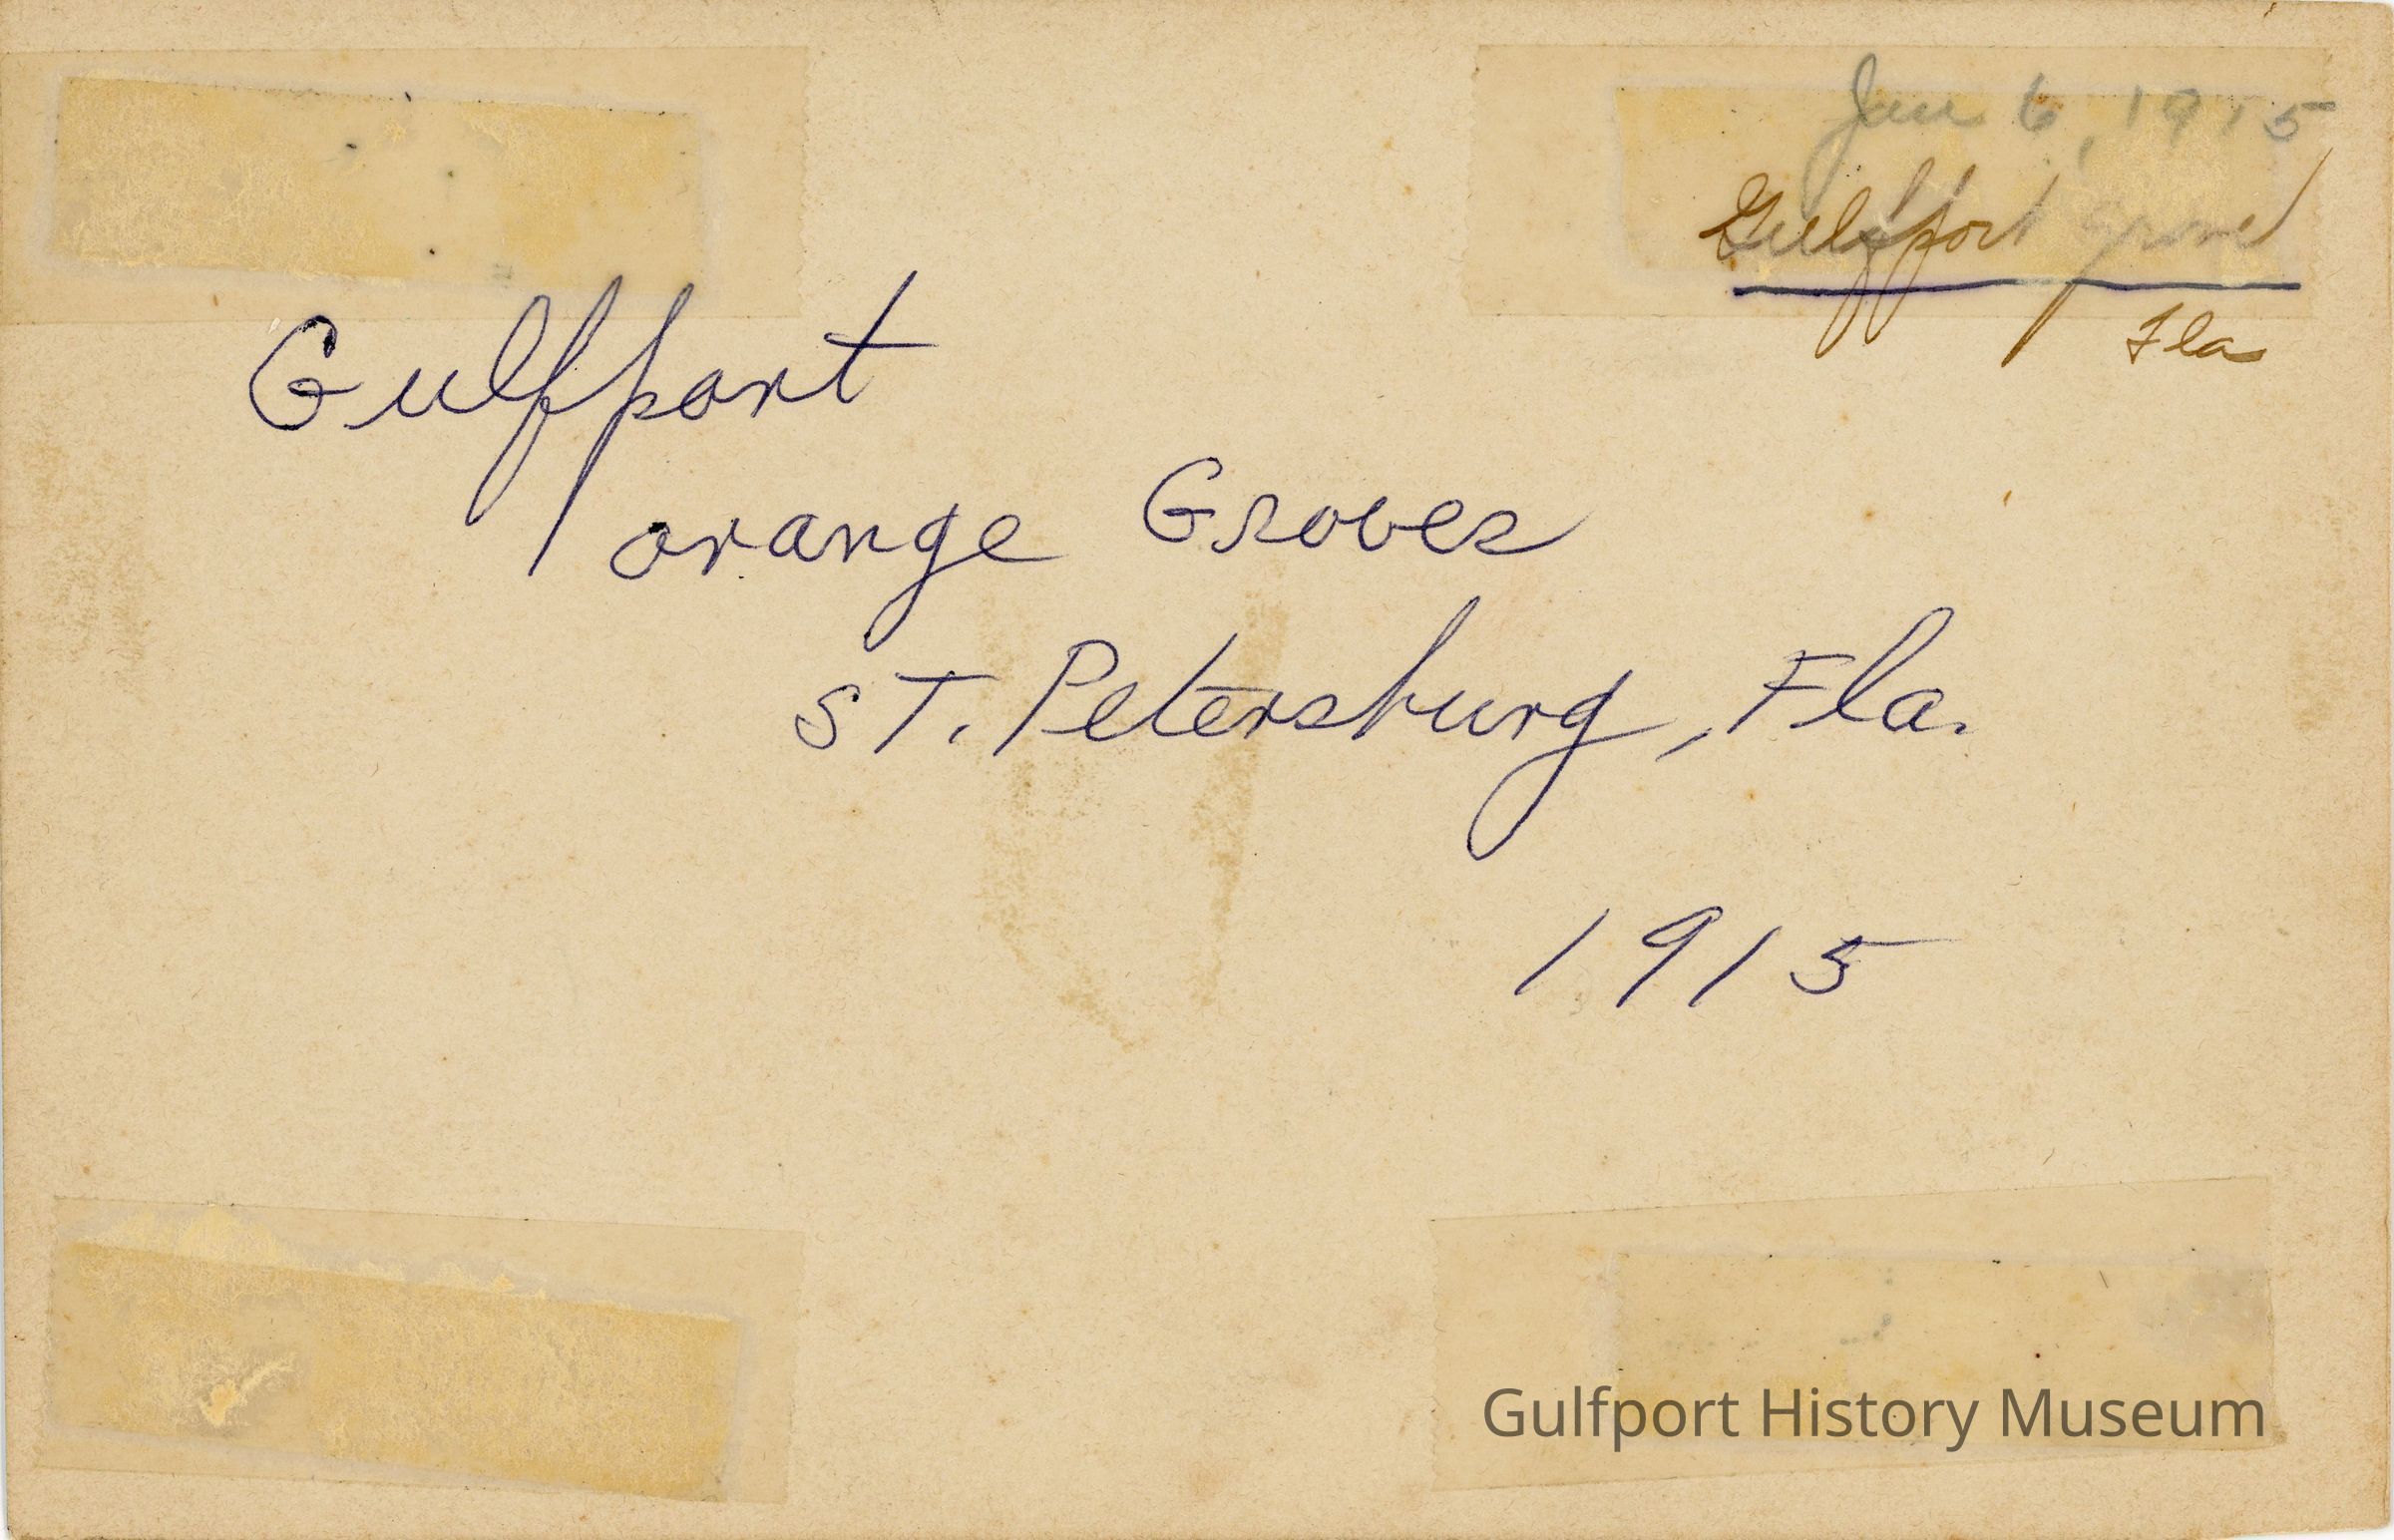 Jan 6, 1915
Gulfport Grove
Fla
Gulfport
orange Groves
ST. Petersburg, Fla.
1915
Gulfport History Museum